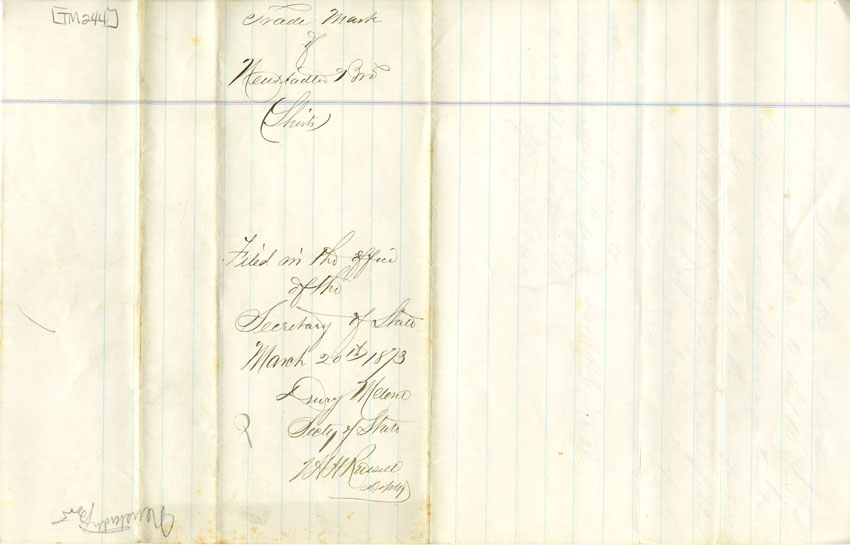 [TM244]
Trade Mark
of
Neustadter & Bro
(Shirts)
Filed in the office
of the
Secretary of State
March 20th 1873
Drury Melone
Secty of State
Russell
Deputy
Neustadter Bro